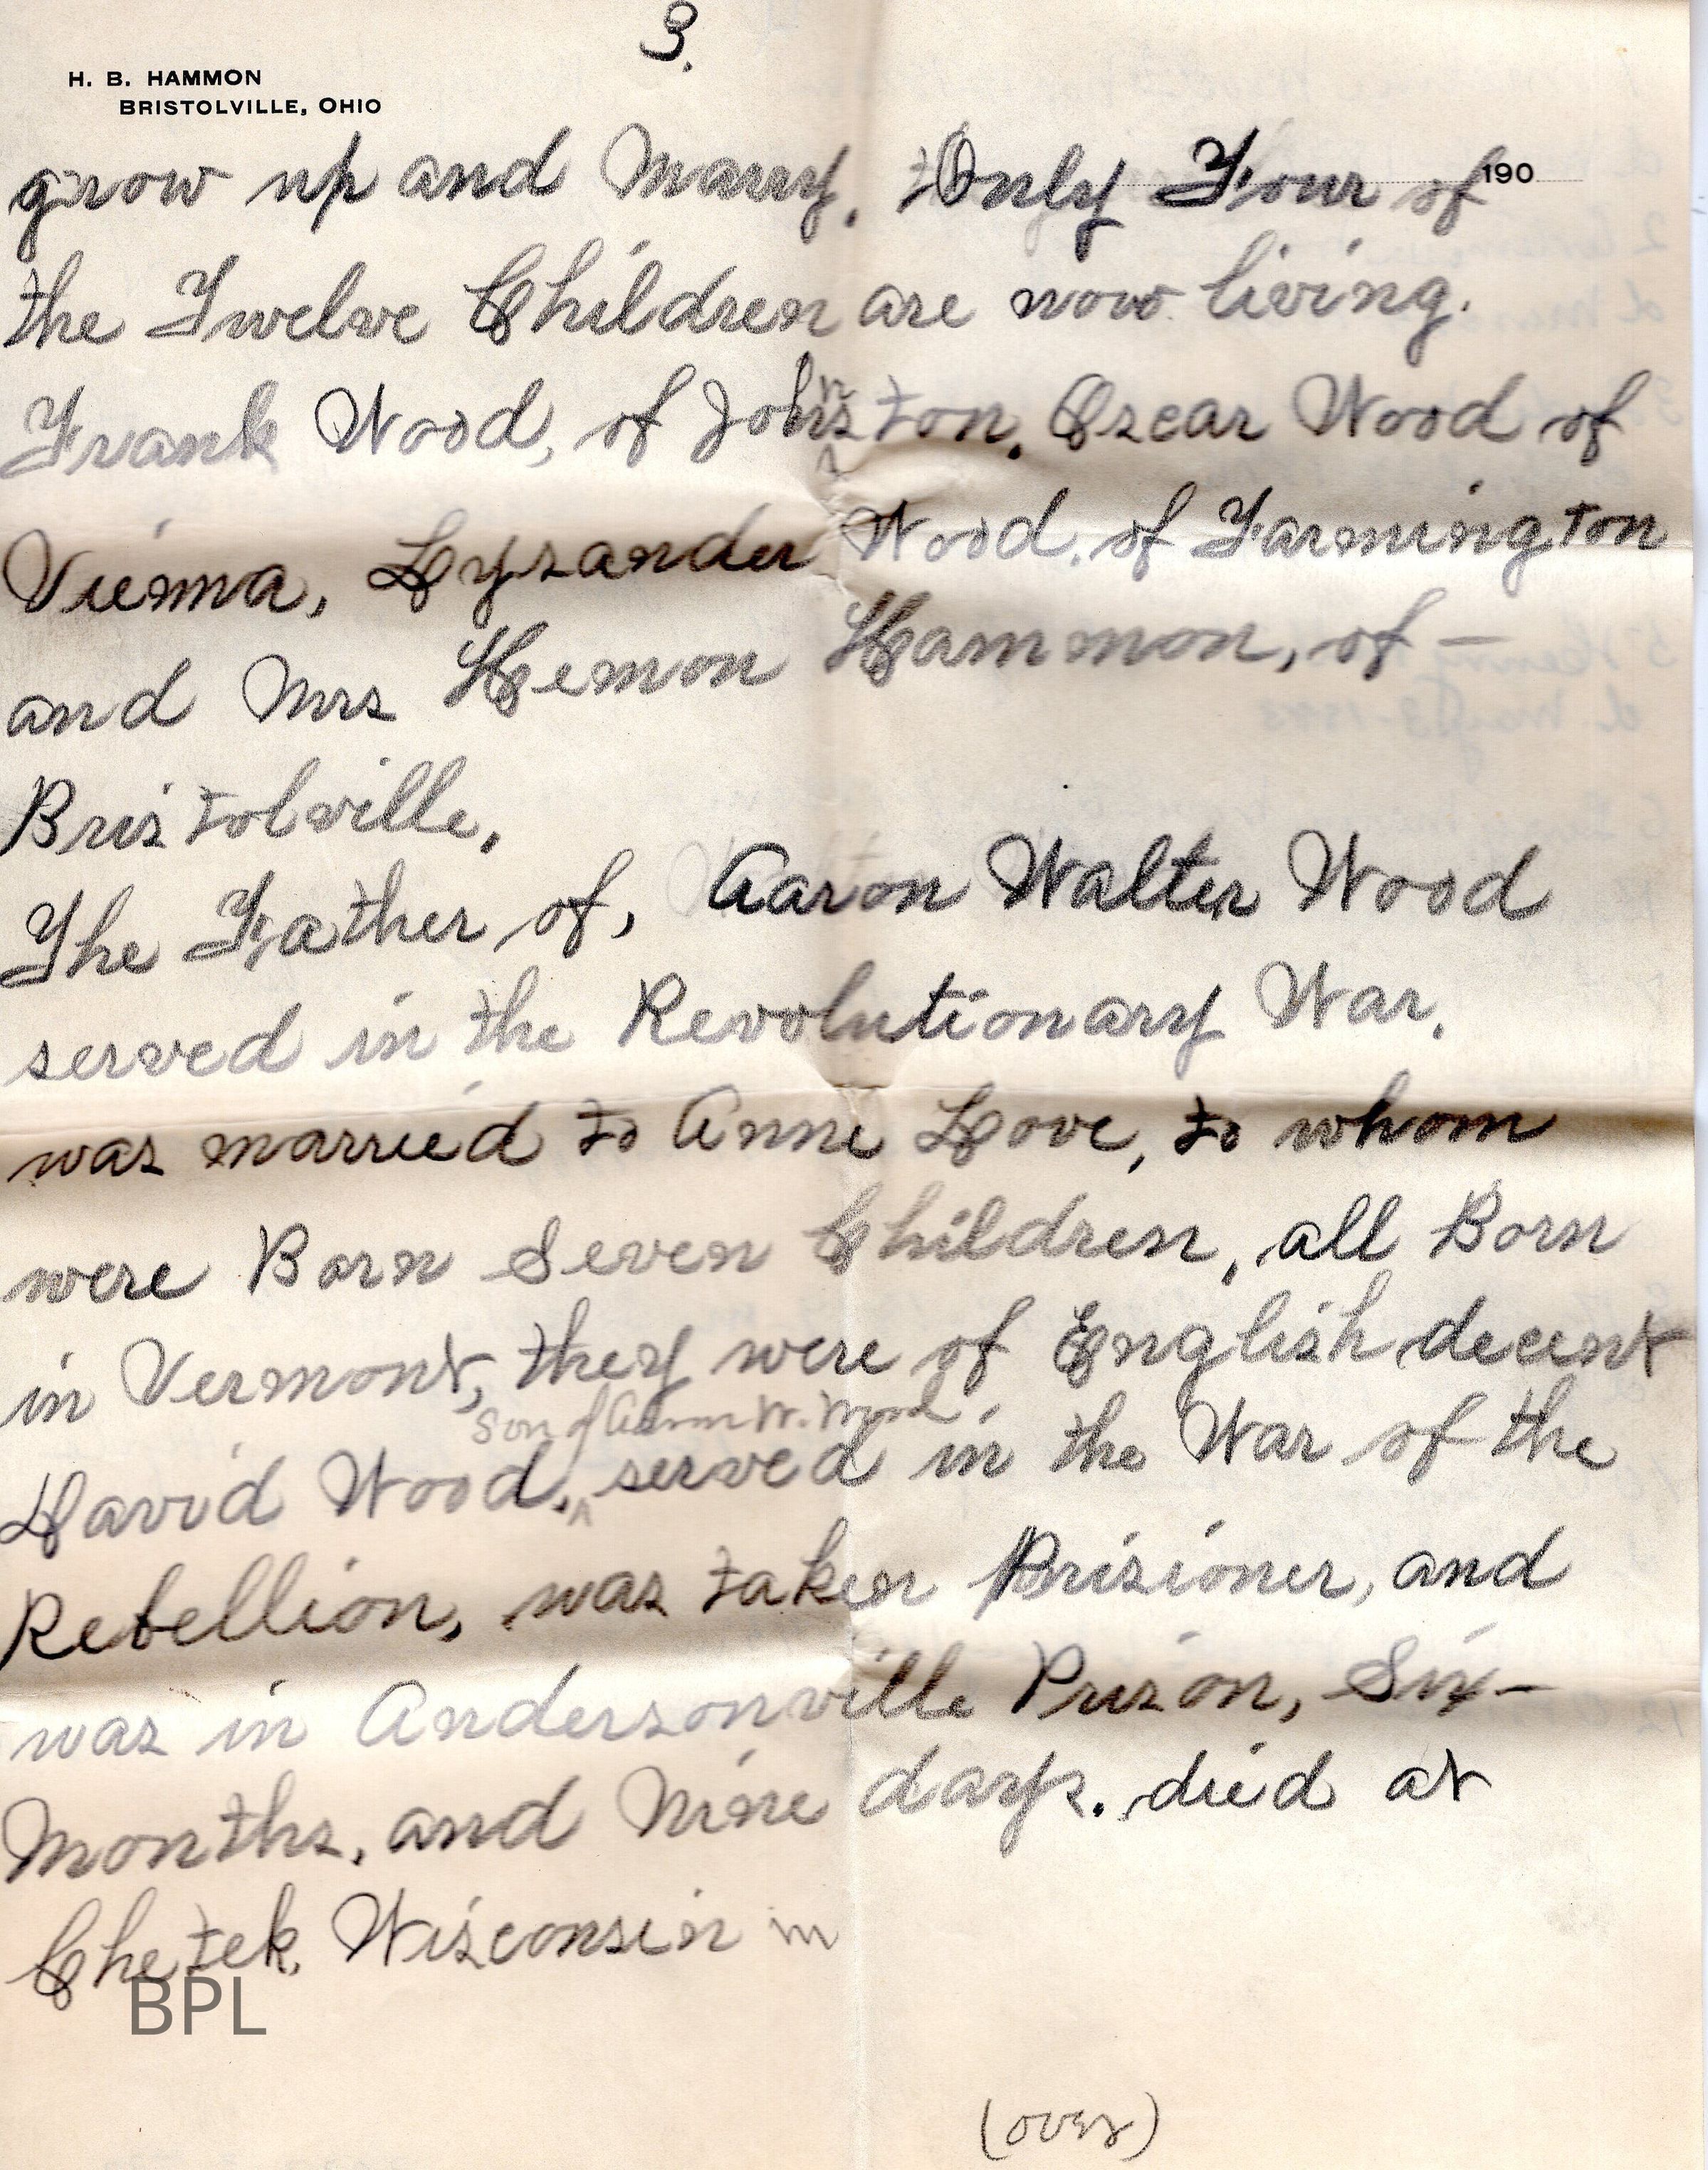 3.
H. B. HAMMON
BRISTOLVILLE, OHIO
190
grow up and Marry. Only Four of
the Twelve Children are now living.
Frank Wood, of Johnston, Oscar Wood of
Vienna, Lysander Wood, of Farmington
and Mrs Hemon Hammon, of —
Bristolville,
The Father of, Aaron Walter Wood
served in the Revolutionary War.
was married to Anne Love, to whom
were Born Seven Children, all Born
in Vermont, they were of English decent
son of Aaron W. Wood
David Wood, ^ served in the War of the
Rebellion, was taken Prisioner, and
was in Andersonville Prison, Six—
Months, and Nine days. died at
Chetek, Wisconsin in
BPL
(over)